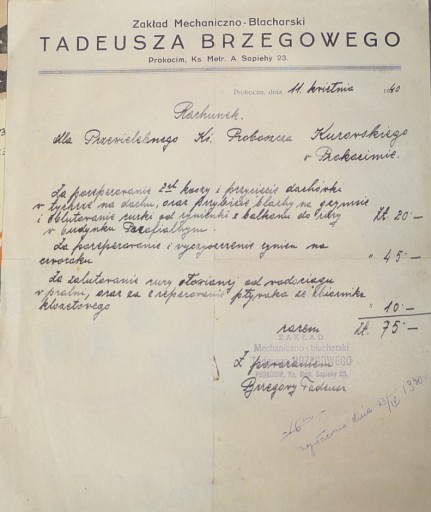 Zakład Mechaniczno-Blacharski
TADEUSZA BRZEGOWEGO
Prokocim, Ks. Metr. A. Sapiehy 23.
Prokocim, dnia 11. kwietnia 1940
Rachunek.
dla Przewielebnego Ks. Proboszcza Kurowskiego
w Prokocimie.
Za zreperowanie koszy i przycięcie dachówki
w tychże na dachu, oraz przybicie blachy na gzymsie
i oblutowanie rurki od rynienki z balkonu do rury
w budynku Parafialnym. Zł. 20.—
Za zreperowanie i wyczyszczenie rynien na
" 45.—
Za zalutowanie rury ołowianej od wodociągu
w pralni, oraz za zreperowanie pływaka ze zbiornika
klozetowego " 10.—
razem Zł. 75.—
ZAKŁAD
Mechaniczno-blacharski
Tadeusza BRZEGOWEGO
PROKOCIM, Ks. Metr. Sapiehy 23.
Z poważaniem
Brzegowy Tadeusz
dnia 1940